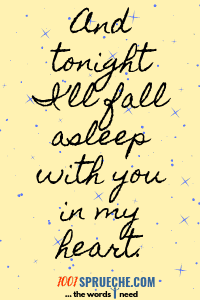 And
tonight
I'll fall
asleep
with you
in my
heart.
1001SPRUECHE.COM
... the words I need